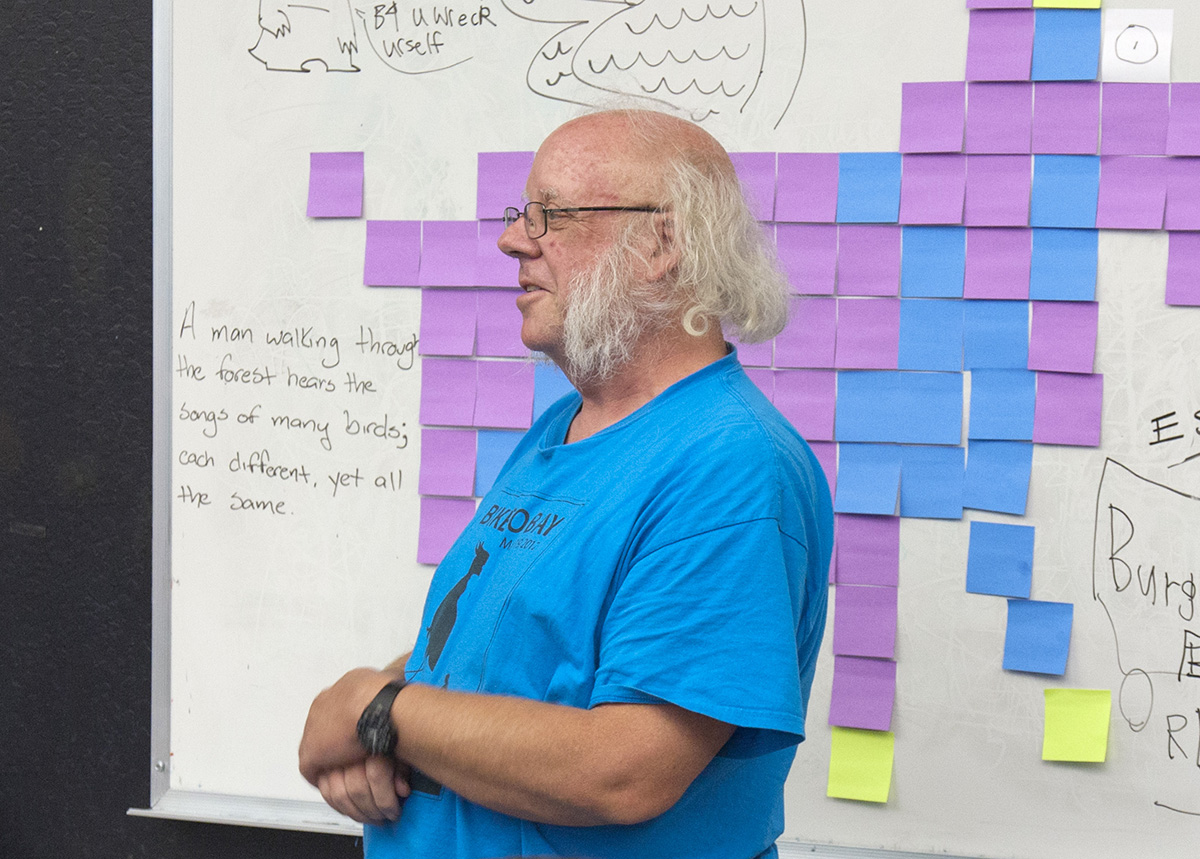 B4 U Wreck
urself
①
A man walking through
the forest hears the
songs of many birds;
each different, yet all
the same.
BIKE BAY
Burg